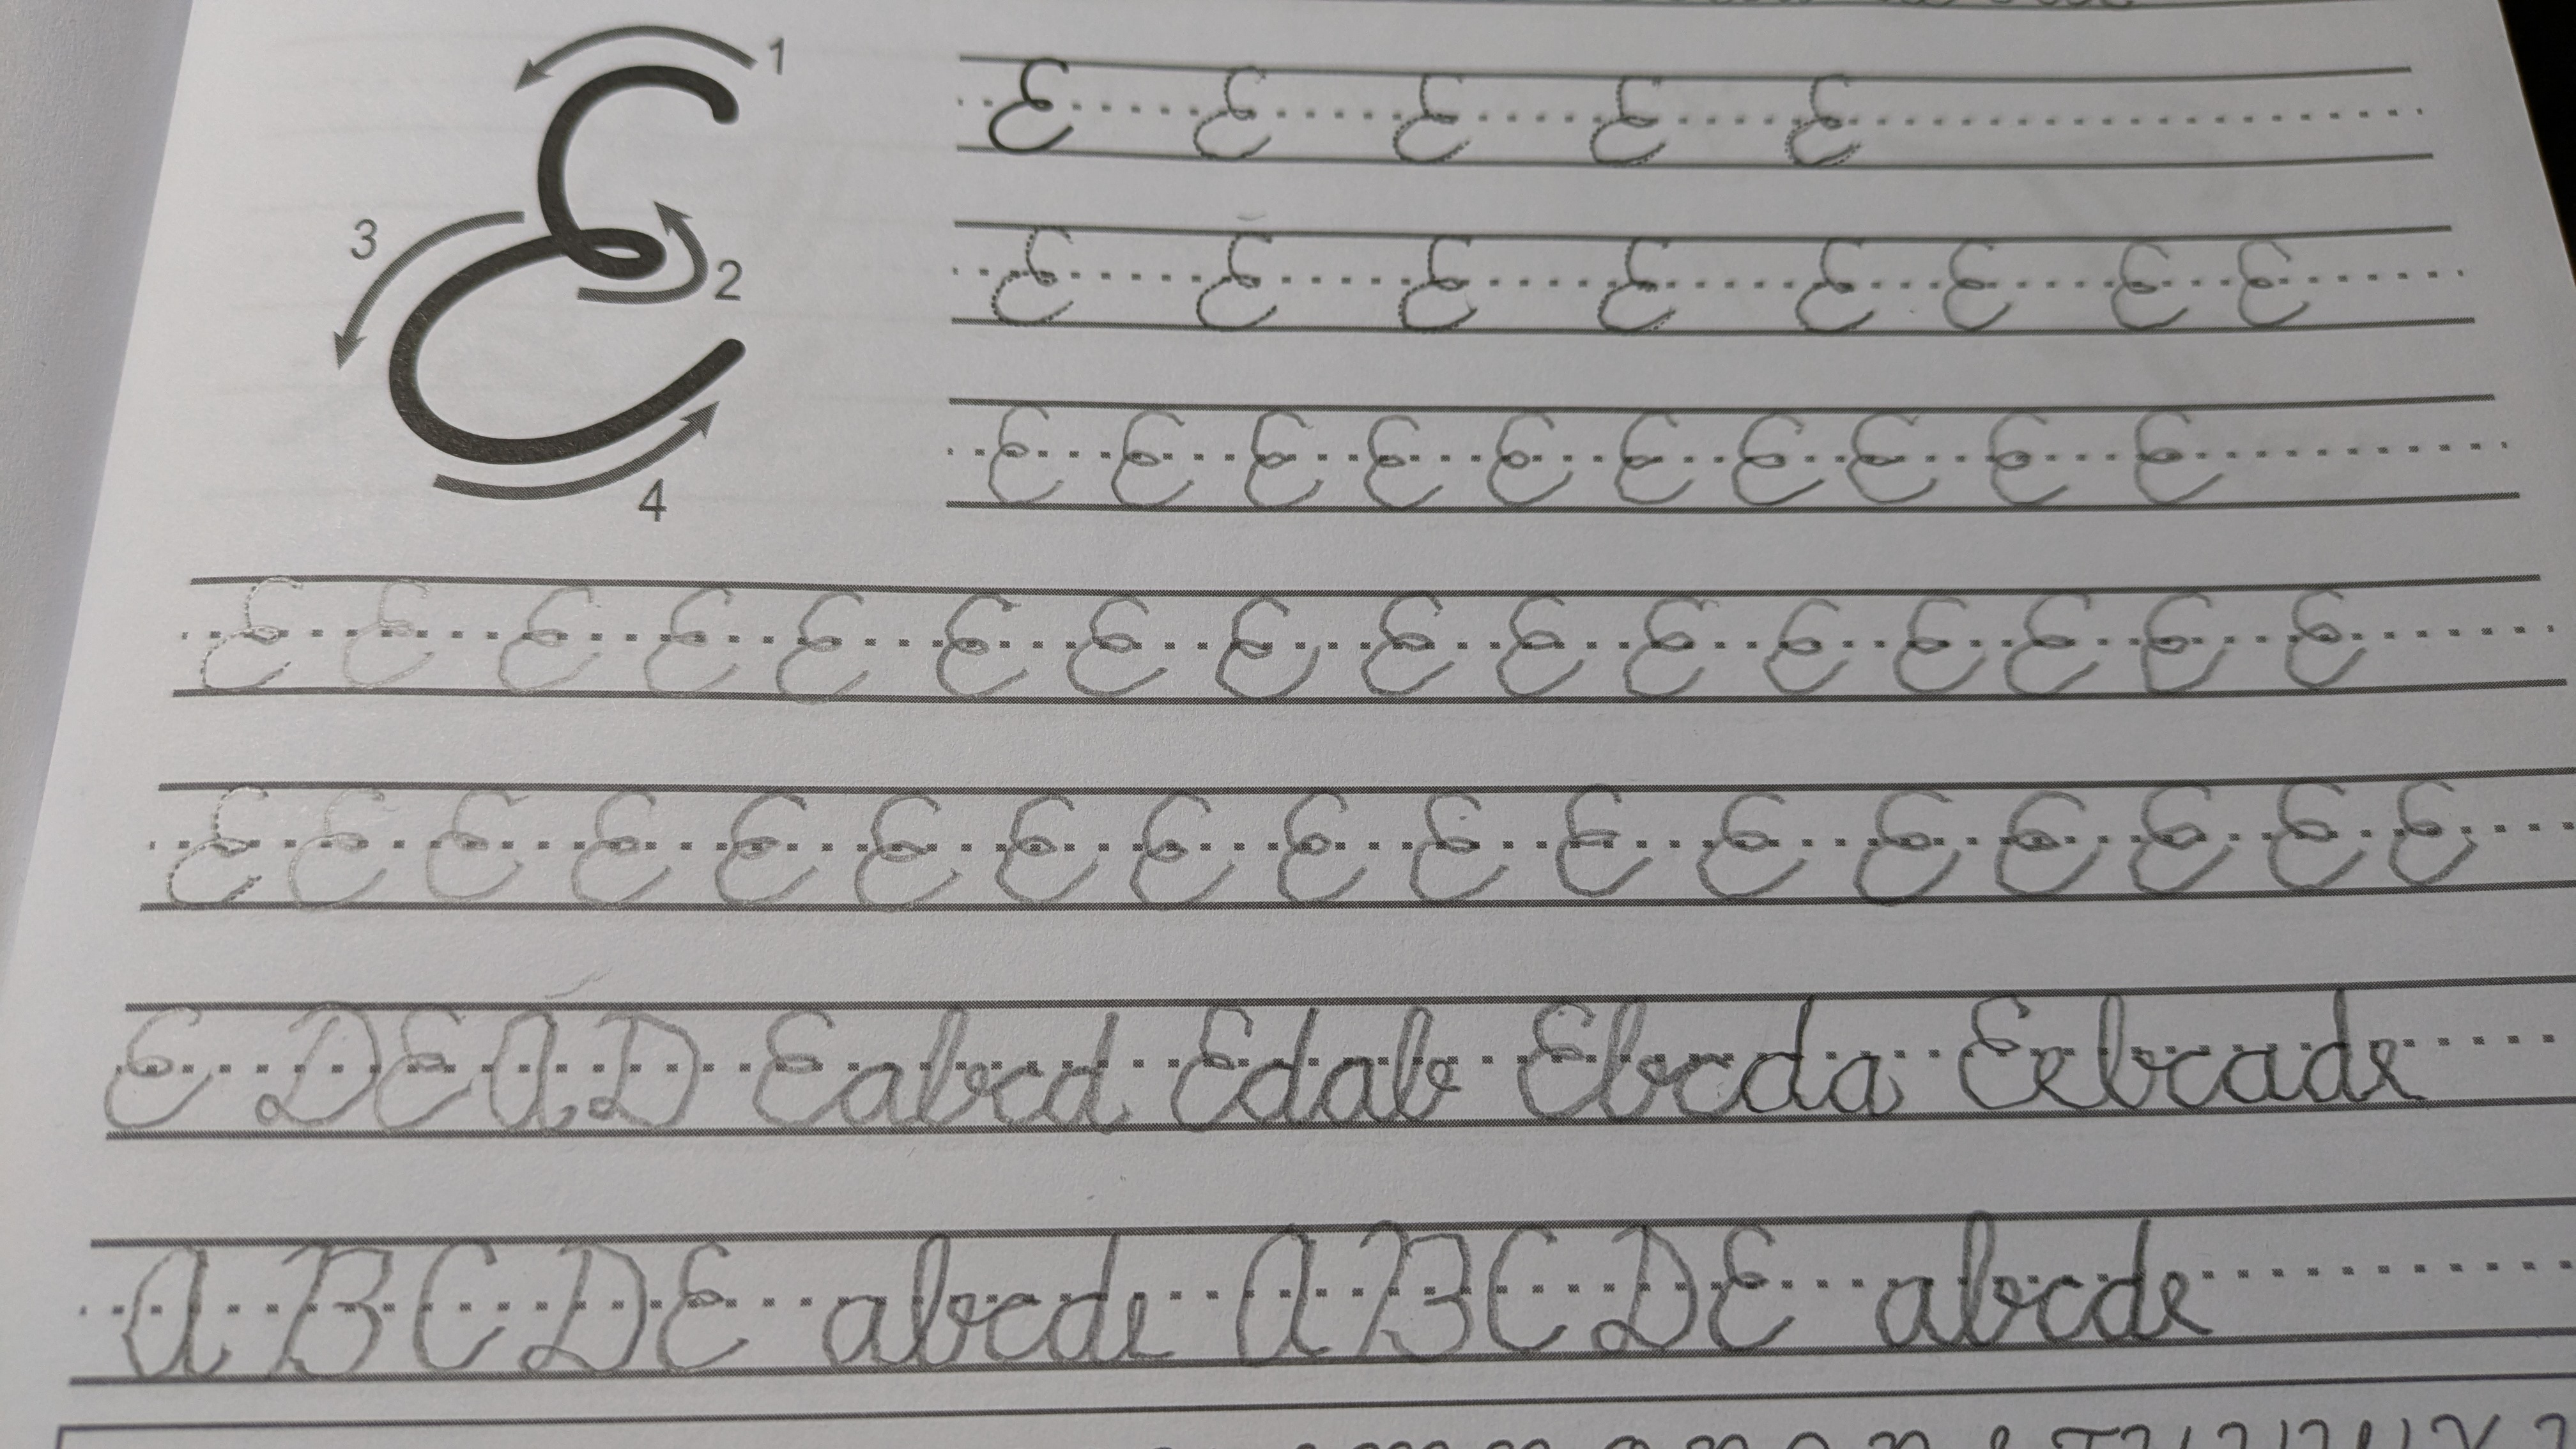 1
2
3
4
E E E E E
E E E E E E E E
E E E E E E E E E E
E E E E E E E E E E E E E E E E
E E E E E E E E E E E E E E E E E
E D E A D Eabcd Edab Ebcda Eebcade
A B C D E abcde A B C D E abcde